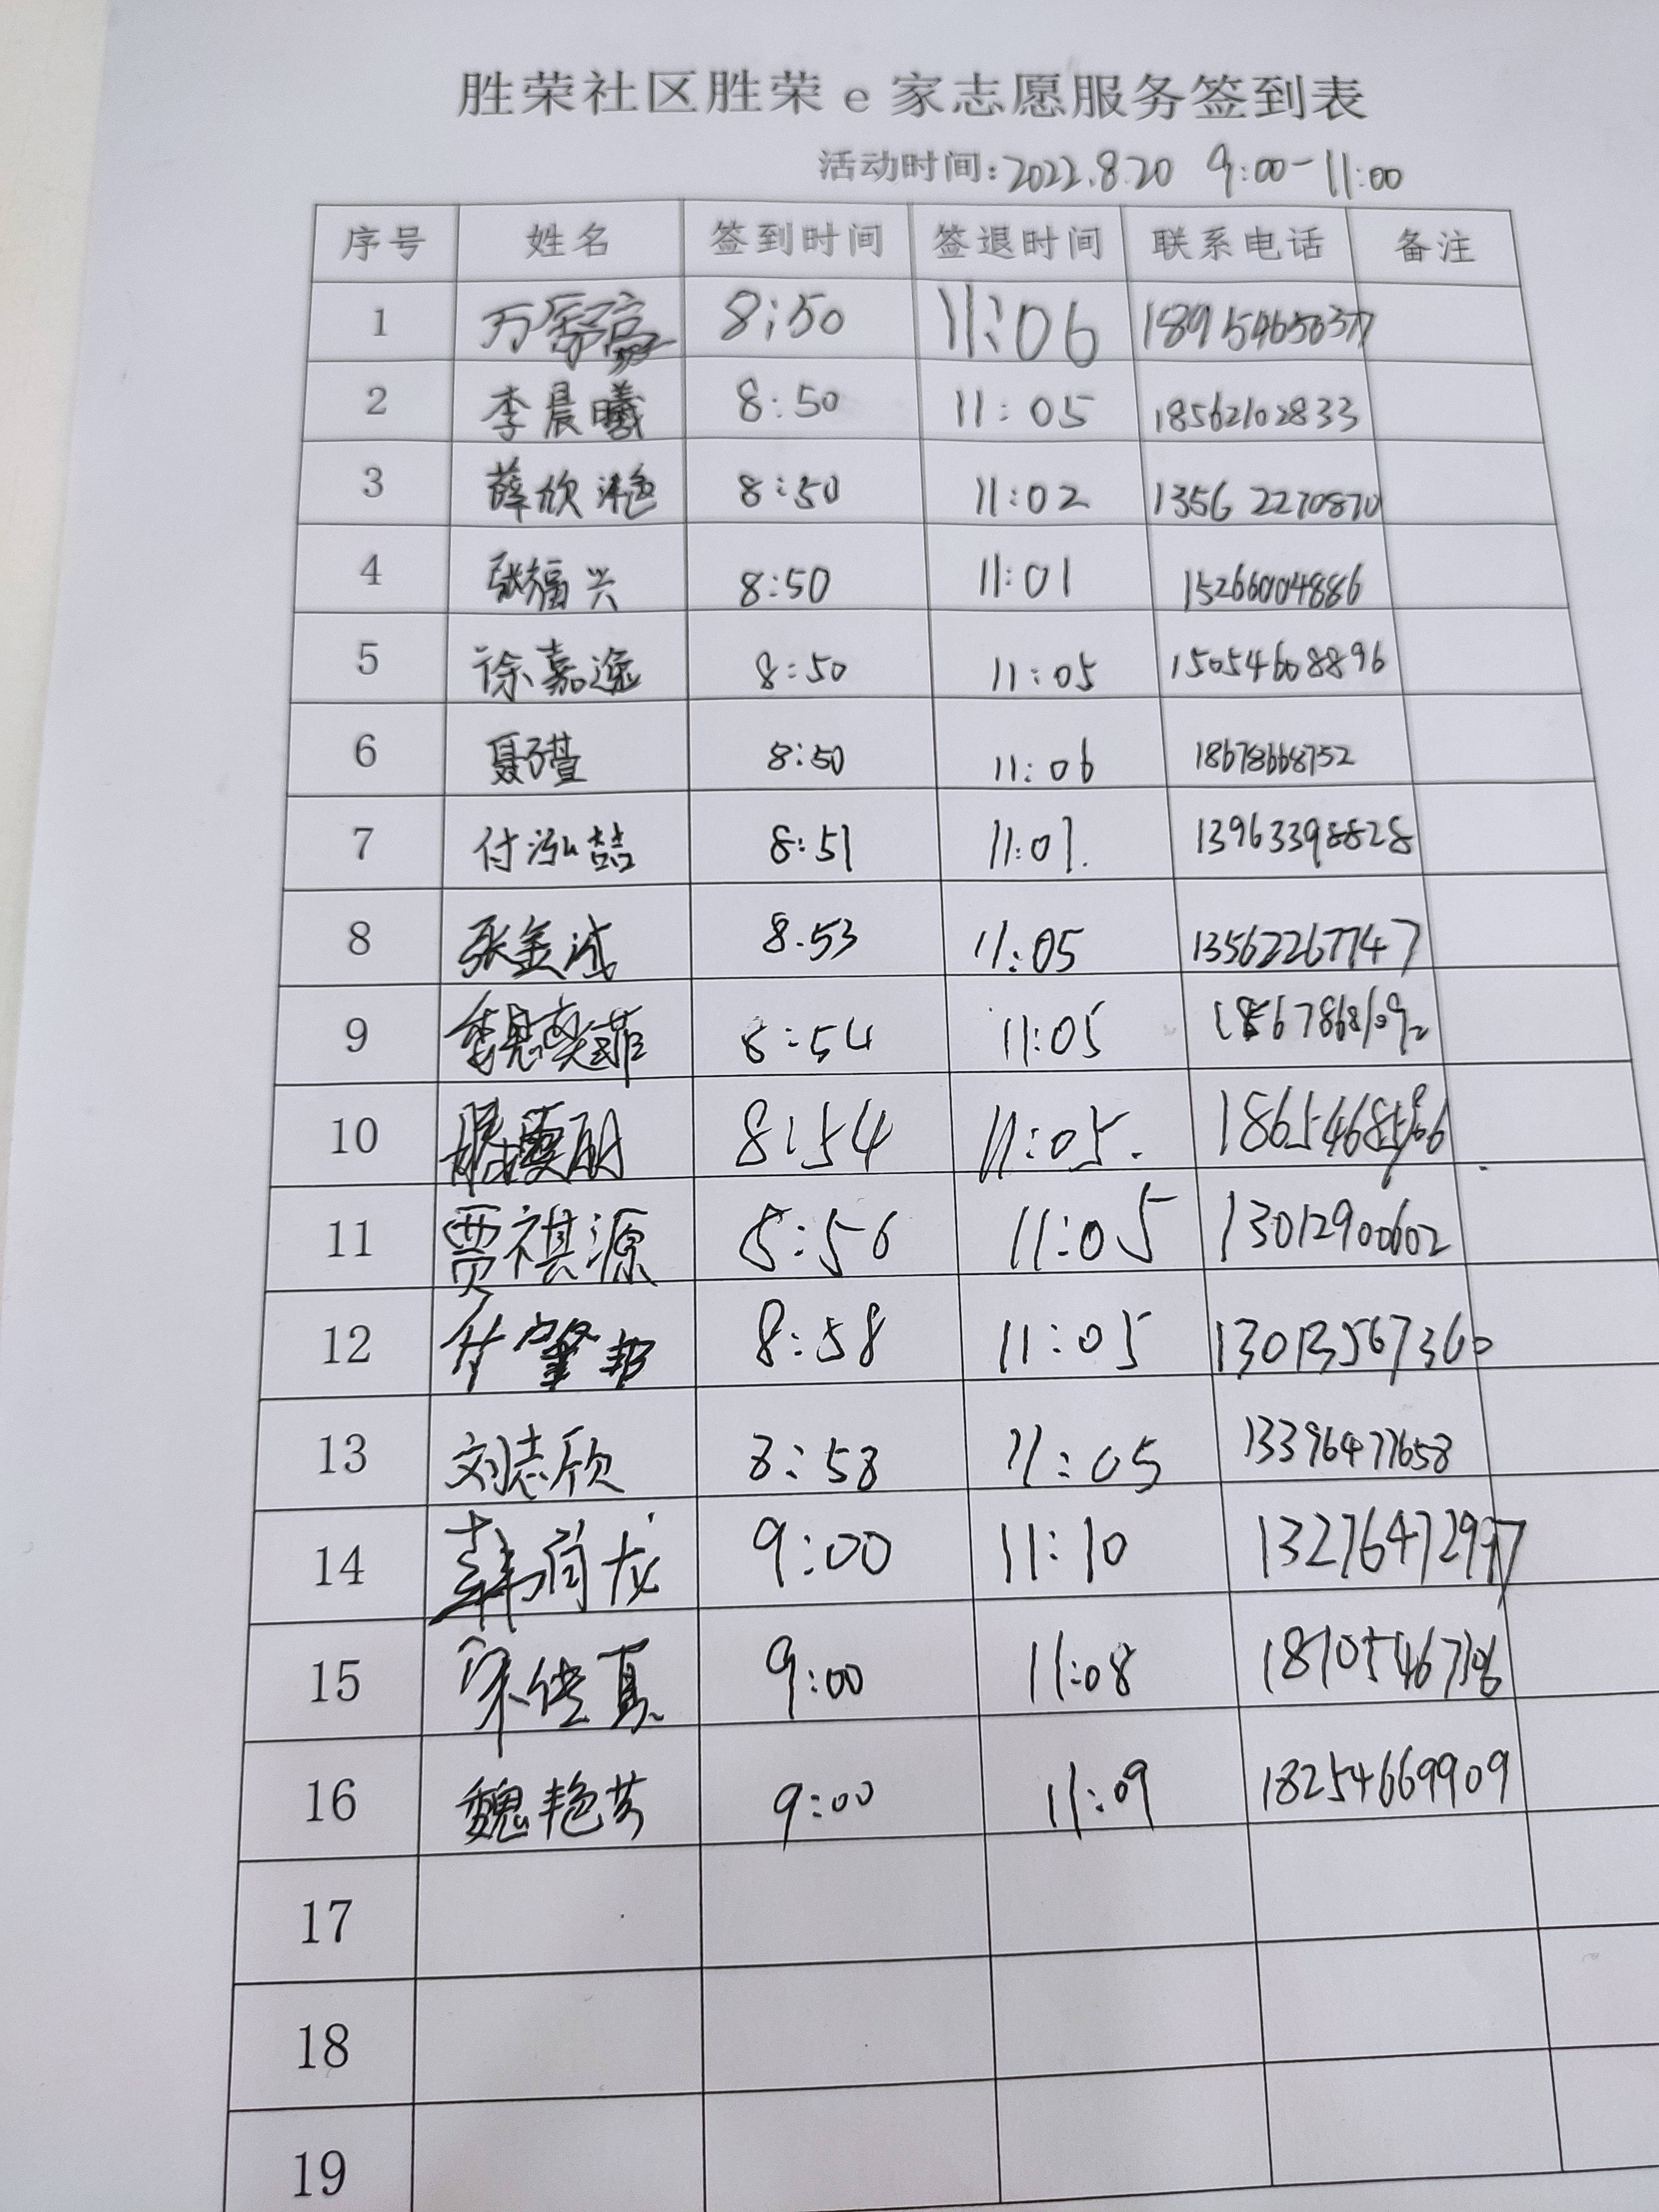 胜荣社区胜荣e家志愿服务签到表
活动时间：2022.8.20 9:00-11:00
序号 姓名 签到时间 签退时间 联系电话 备注
1 万 8:50 11:06
2 李晨曦 8:50 11:05 18562102833
3 薛欣滟 8:50 11:02 13562270870
4 张福兴 8:50 11:01 15266004886
5 徐嘉逸 8:50 11:05 15054608896
6 聂子萱 8:50 11:06 18678668752
7 付泓喆 8:51 11:01. 13963398828
8 张金诚 8.53 11:05 13562267747
9 魏奕菲 8:54 11:05
10 8:54 11:05.
11 贾祺源 8:56 11:05 13012900602
12 付肇邦 8:58 11:05 13013567360
13 刘志欣 8:58 11:05 13396477658
14 韩 龙 9:00 11:10
15 宋佳真 9:00 11:08
16 魏艳芳 9:00 11:09 18254669909
17
18
19